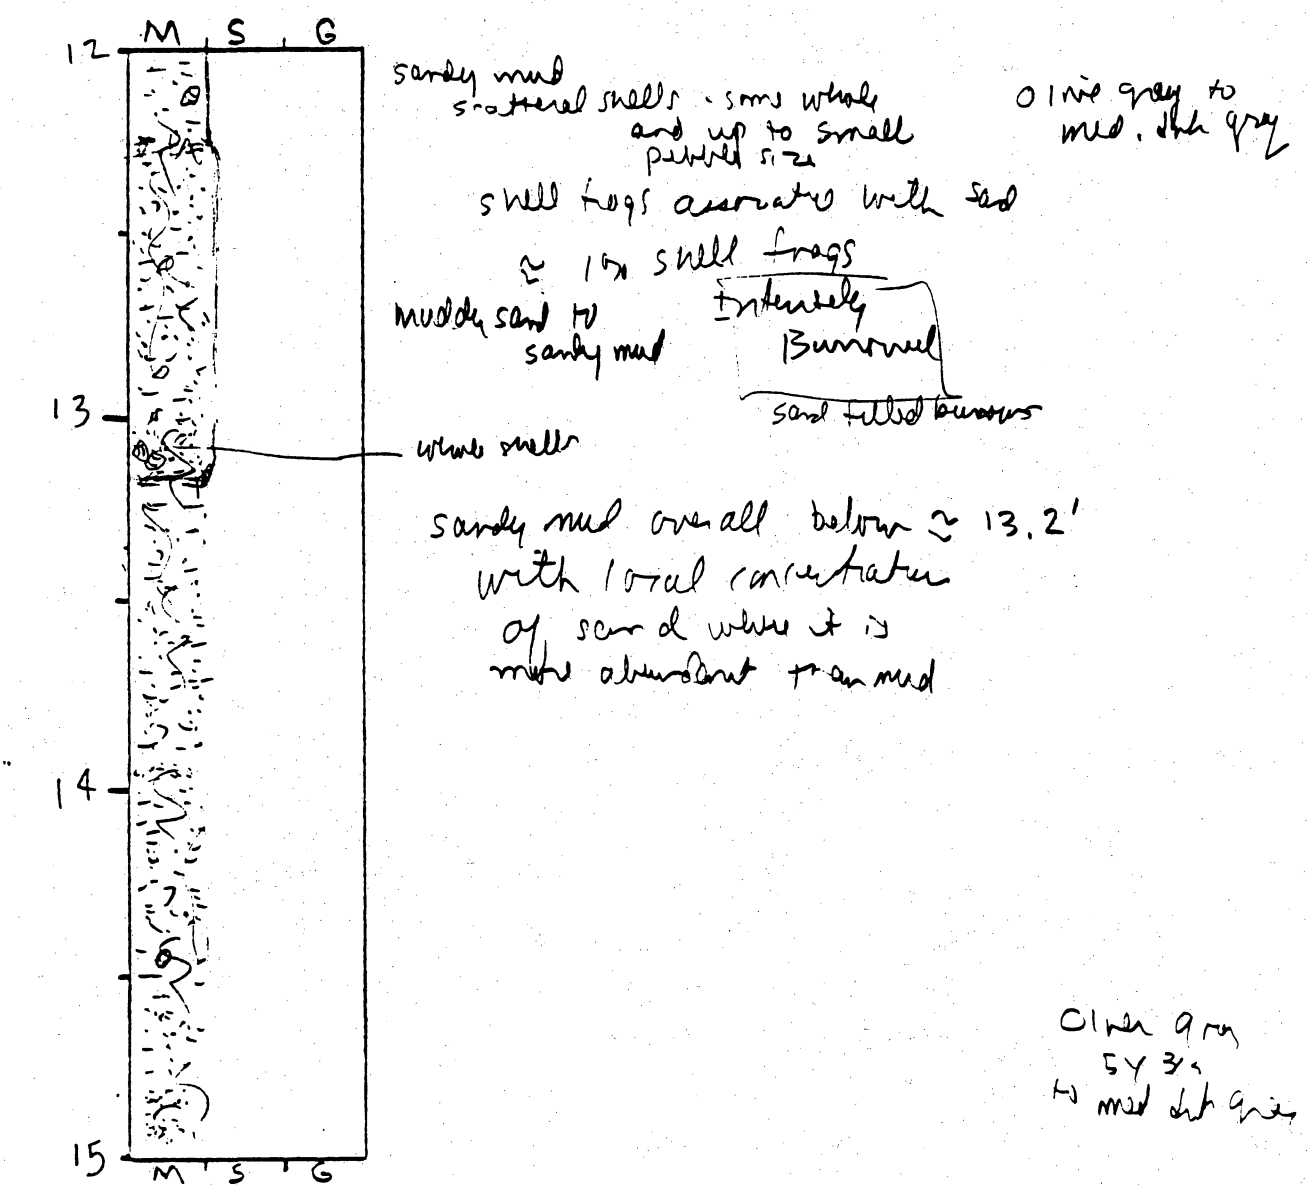 M S G
12
sandy mud
scattered shells - some whole
and up to small
pebble size
olive gray to
med. drk gray
shell frags associated with sand
≈ 1% shell frags
muddy sand to
sandy mud
Intensely
Burrowed
sand filled burrows
13
whole shells
sandy mud overall below ≈ 13.2'
with local concentration
of sand where it is
more abundant than mud
14
Olive gray
5Y 3/2
to med drk gray
15
M S G